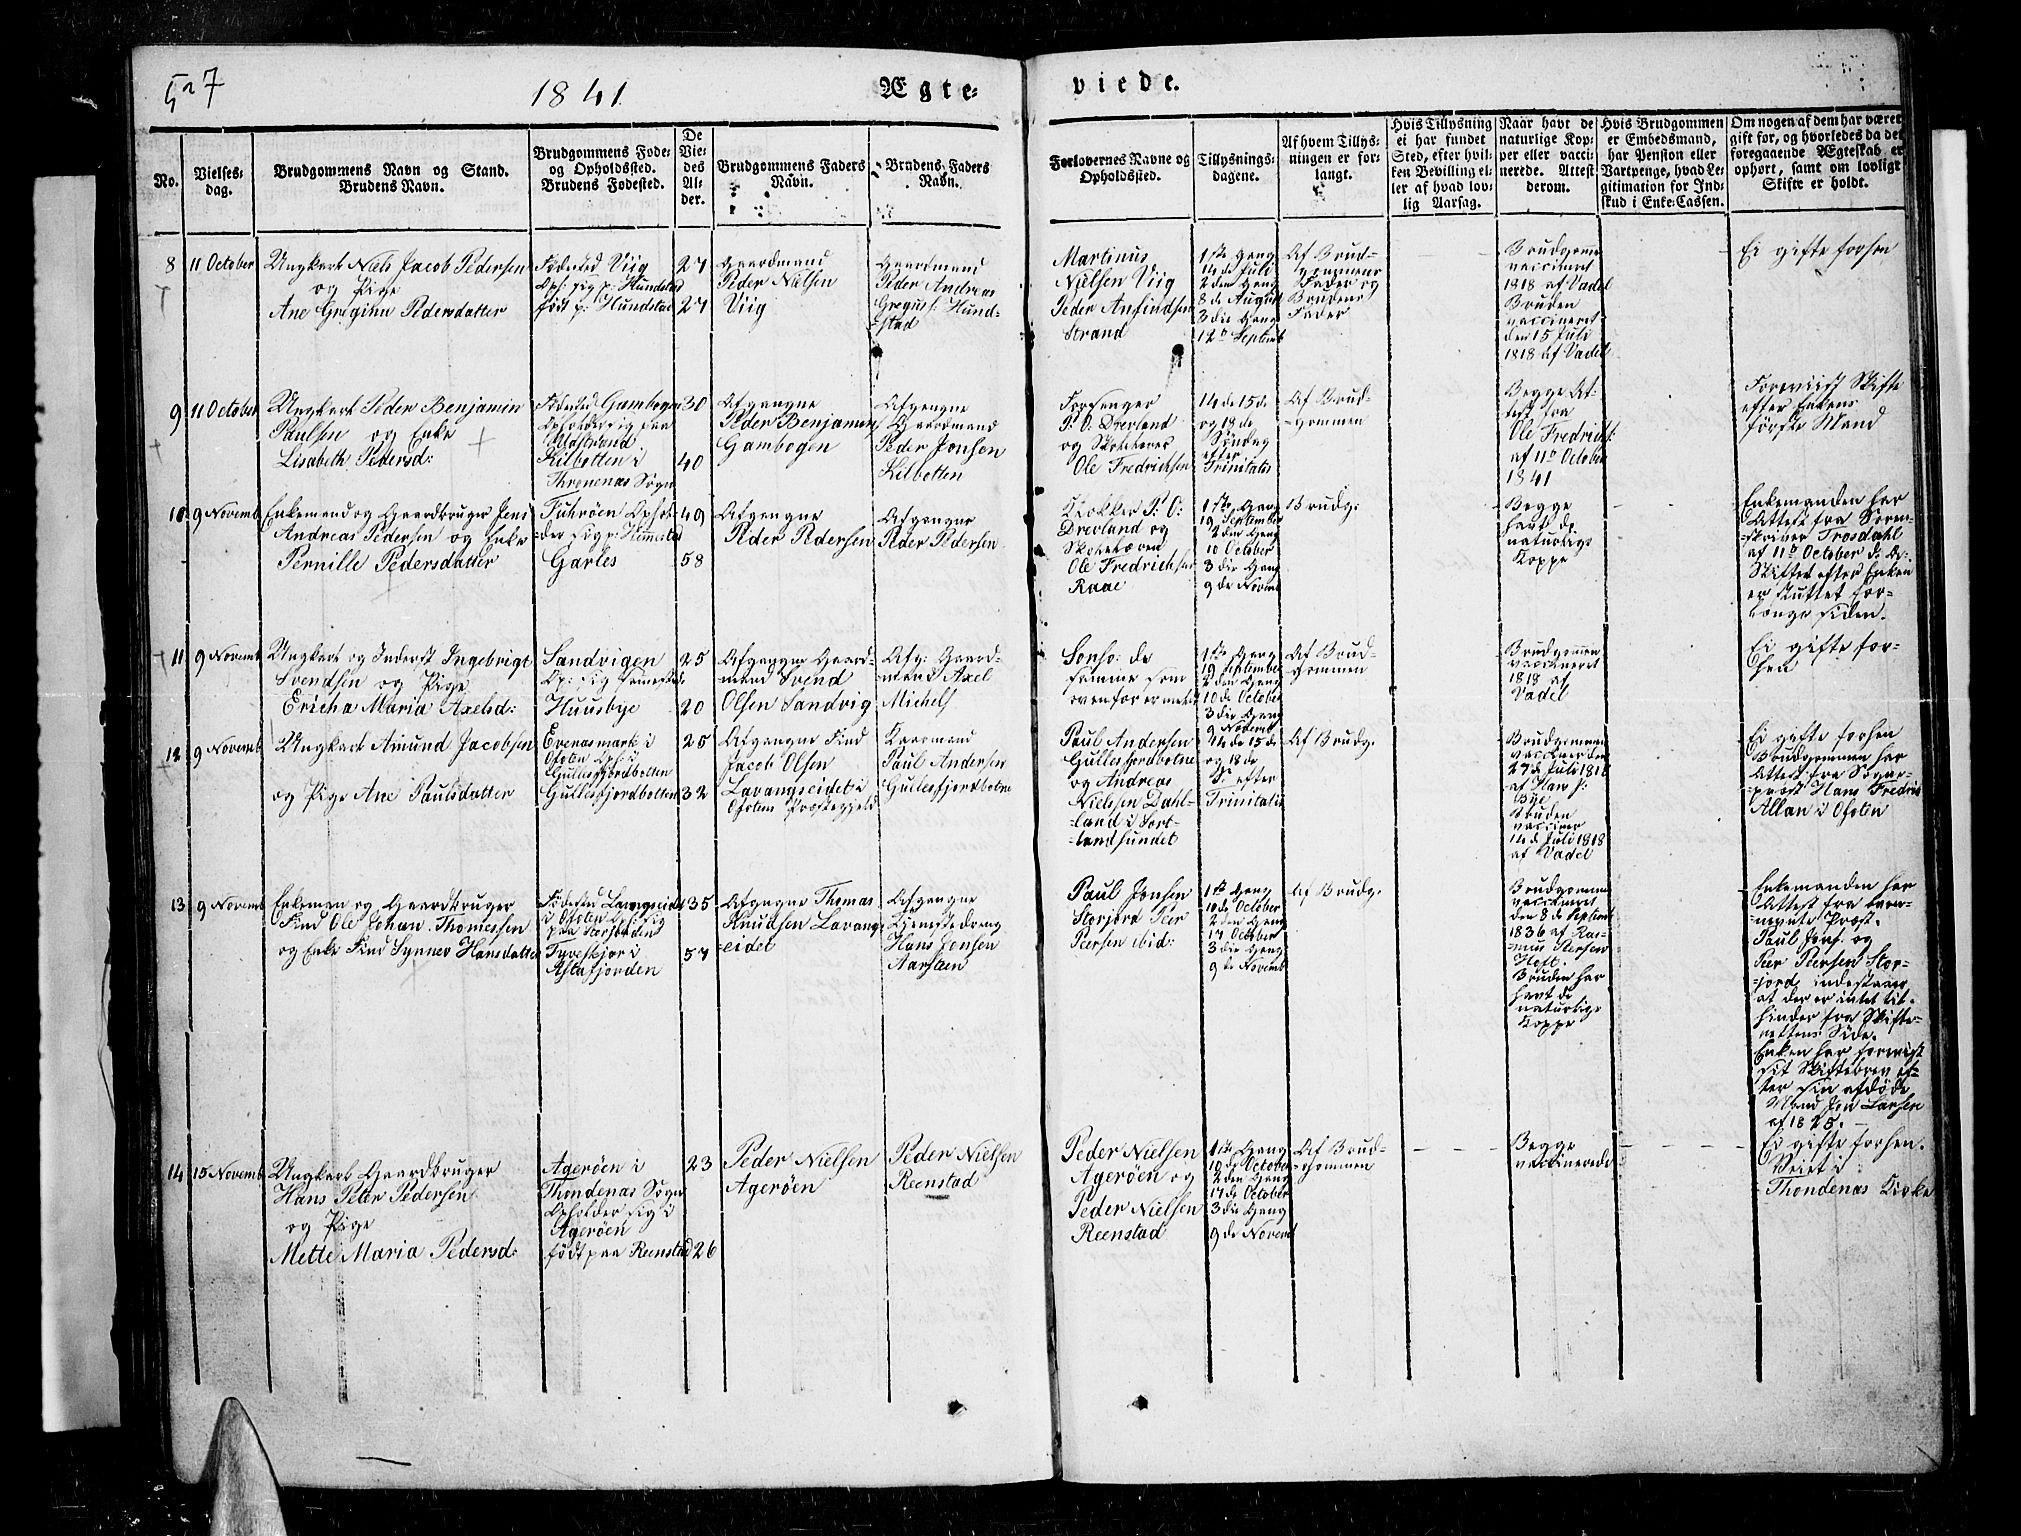 527
1841
Ægte-
viede.
No.
Vielses-
dag.
Brudgommens Navn og Stand.
Brudens Navn.
Brudgommens Føde-
og Opholdssted.
Brudens Fødested.
De
Vie-
des
Al-
der.
Brudgommens Faders
Navn.
Brudens Faders
Navn.
Forlovernes Navne og
Opholdssted.
Tillysnings-
dagene.
Af hvem Tillys-
ningen er for-
langt.
Hvis Tillysning
ei har fundet
Sted, efter hvil-
ken Bevilling el-
ler af hvad lov-
lig Aarsag.
Naar havt de
naturlige Kop-
per eller vacci-
nerede. Attest
derom.
Hvis Brudgommen
er Embedsmand,
har Pension eller
Vartpenge, hvad Le-
gitimation for Ind-
skud i Enke-Cassen.
Om nogen af dem har været
gift før, og hvorledes da det
foregaaende Ægteskab er
ophørt, samt om lovligt
Skifte er holdt.
8
11 October
Ungkarl Niels Jacob Pedersen
og Pige
Ane Gregine Pedersdatter
Fødested Viig
Oph: sig p: Hundstad
født p: Hundstad
27
27
Gaardmand
Peder Nielsen
Viig
Gaardmand
Peder Andreas
Gregus: Hund-
-stad
Martinus
Nielsen Viig
Peder Anfindsen
Strand
1ste Gang
14de Juli
2den Gang
8de August
3die Gang
12te Septemb
Af Brud-
gommens
Fader og
Brudens
Fader
Brudgomm
vaccineret
1818 af Vadel
Bruden
vaccineret
den 15 Juli
1818 af Vadel
Ei gifte forhen
9
11 October
Ungkarl Peder Benjamin
Paulsen og Enke
Lisabeth Pedersd:
Fødested Gambogen
Opholder sig paa
Kilbotten i
Throndenæs Sogn
30
40
Afgangne
Peder Benjamin
Gambogen
Afgangne
Gaardmand
Peder Jonsen
Kilbotten
Forsanger
P. O. Drevland
og Skolelærer
Ole Fredrichsen
14de 15de
og 18de
Søndag
efter
Trinitatis
Af Brud-
-gommen
Begge At-
test fra
Ole Fredrichs:
af 11te October
1841
Foreviist Skifte
efter Enkens
første Mand
10
9 Novemb
Enkemand og Gaardbruger Jens
Andreas Pedersen og Enke
Pernille Pedersdatter
Garles
49
58
Afgangne
Peder Pedersen
Afgangne
Peder Pedersen
Klokker P. O:
Drevland og
Skolelæren
Ole Fredrichsen
Raae
1ste Gang
19 September
2den Gang
10 October
3die Gang
9de Novemb
Brudg:
Begge
havt de
naturlige
Koppe
Enkemanden har
Attest fra Soren-
skriver Trosdahl
af 11te October d: A:
Skiftet efter Enken
er sluttet for-
længe siden.
11
9 Novemb
Ungkarl og Inderst Ingebrigt
Svendsen og Pige
Ericha Maria Axelsd:
Sandvigen
Huusbye
25
20
Afgangne Gaard-
mand Svend
Olsen Sandvig
Afg: Gaard-
mand Axel
Michels
de
samme som
ovenfor er meldt
1ste Gang
19 September
2den Gang
10de October
3die Gang
9 Novemb
Af Brud-
gommen
Brudgommen
vaccineret
1818 af
Vadel
Ei gifte for-
hen
12
9 Novemb
Ungkarl Amund Jacobsen
og Pige Ane Paulsdatter
Evenæsmark i
Ofoten Oph: i
Gullesfjordbotten
Gullesfjordbotten
25
32
Afgangne Find
Jacob Olsen
Lavangseidet i
Ofoten Præstegjeld
Gaardmand
Paul Andersen
Gullesfjordbotne
Paul Andersen
Gullesfjordbotne
og Andreas
Nielssen Dahl-
-land i Sort-
-landsundet
14de 15de
og 18de
S. efter
Trinitatis
Af Brudg:
Brudgommen
vaccineret den
27de Juli 1818
Bye
Bruden
vacciner
14de Juli 1818
af Vadel
Ei gifte forhen
Brudgommen har
Attest fra Sogne-
præst Hans Fredrik
Allan i Ofoten
13
9 Novemb
Enkeman og Gaardbruger
Find Ole Johan Thomessen
og Enke Find Synnev Hansdatter
Fødested Lavangseid
i Ofoten Oph: sig
Tyveskjær i
Astafjorden
35
57
Afgangne Thomas
Knudsen Lavang-
eidet
Afgangne
Tjenestedreng
Hans Jonsen
Aarsteen
Paul Jonsen
Storjord Peer
Peersen ibid:
1ste Gang
10de October
2den Gang
17 October
3die Gang
9de Novemb
Af Brudg:
Brudgommen
vaccineret
den 8de Septemb
1836 af Ras-
mus Peersen
Hoft.
Bruden har
havt de
naturlige
Koppe
Enkemanden har
Attest fra
Præst.
Paul Jons: og
Peer Peersen Stor-
-jord, indestaar
at der er intet til
hinder fra Skifte-
rettens Side.
Enken har foreviist
sit Skiftebrev ef-
ter sin afdøde
Mand Jon Larsen
af 1825.
14
15 Novemb
Ungkarl Gaardbruger
Hans Peter Pedersen
og Pige
Mette Maria Pedersd:
Agerøen i
Thondenæs Sogn
Opholder sig i
Agerøen
født paa Reenstad
23
26
Peder Nielsen
Agerøen
Peder Nielsen
Reenstad
Peder Nielsen
Agerøen og
Peder Nielsen
Reenstad
1ste Gang
10de October
2den Gang
17de October
3die Gang
9de Novemb
Af Brud-
-gommen
Begge
vaccinerede
Ei gifte forhen.
Viet i
Thondenæs Kirke